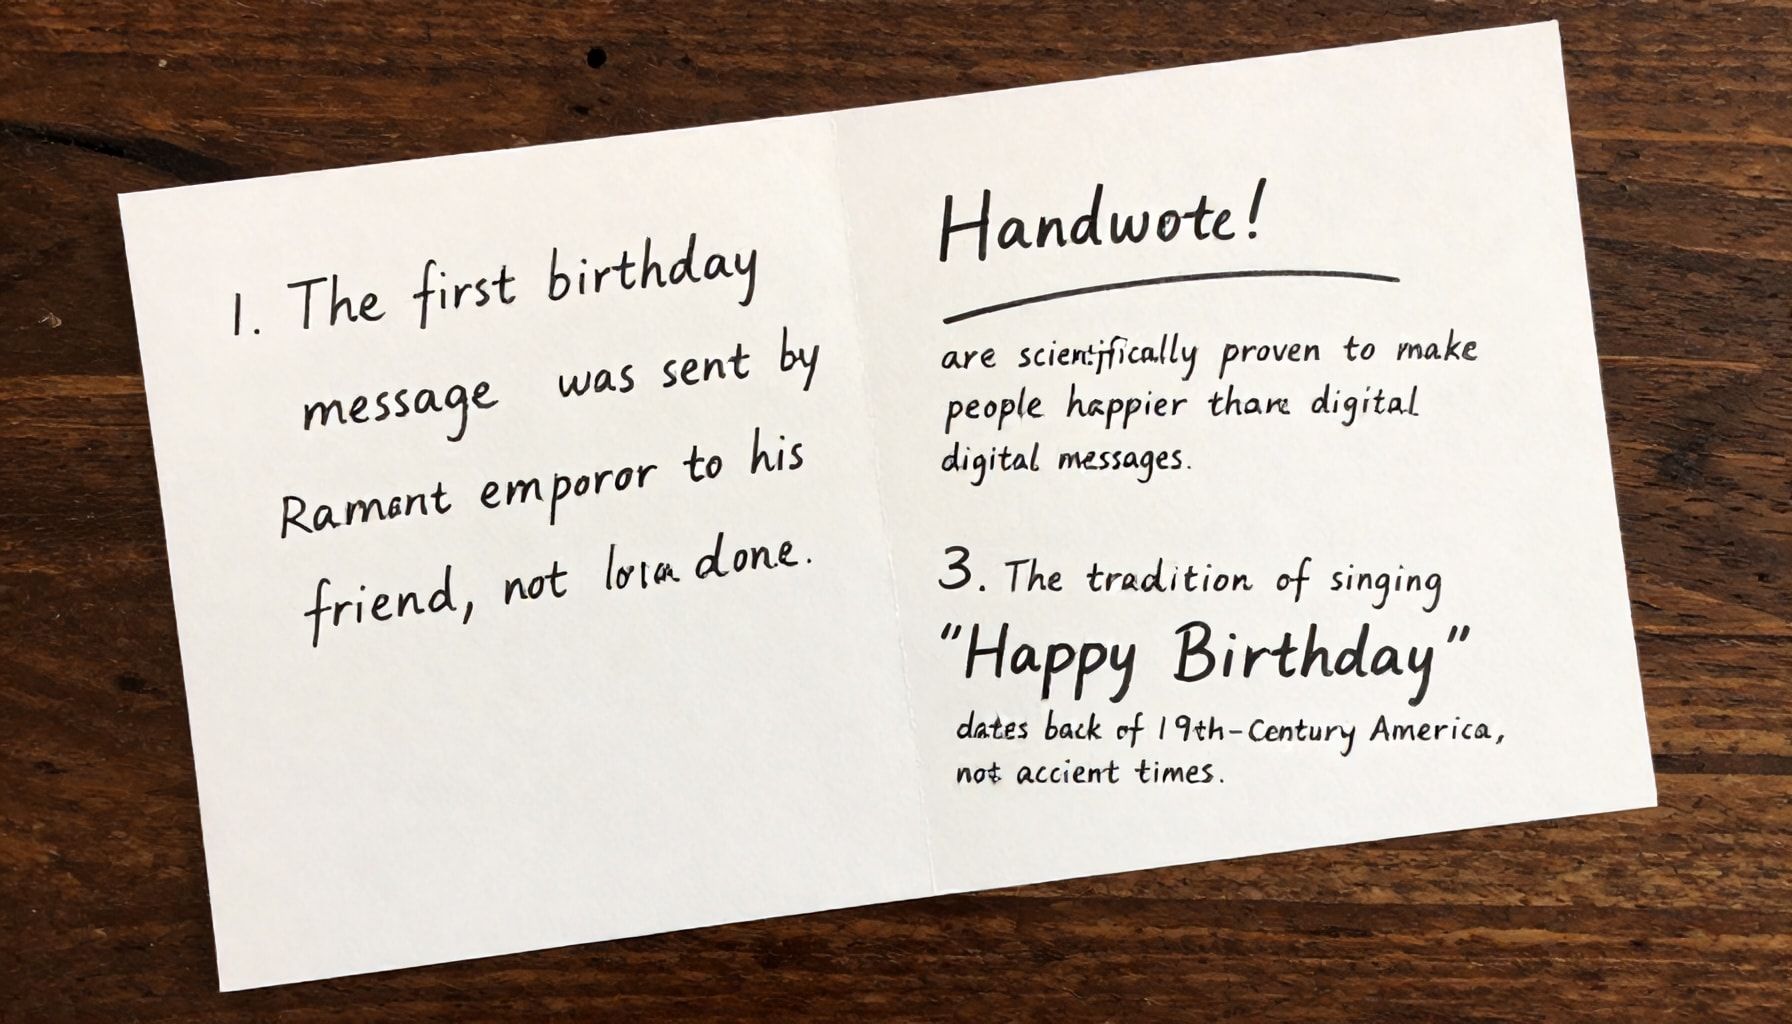 1. The first birthday
message was sent by
Ramant emporor to his
friend, not done.
Handwote!
are scientifically proven to make
people happier than digital
digital messages.
3. The tradition of singing
"Happy Birthday"
dates back of 19th-Century America,
not accient times.